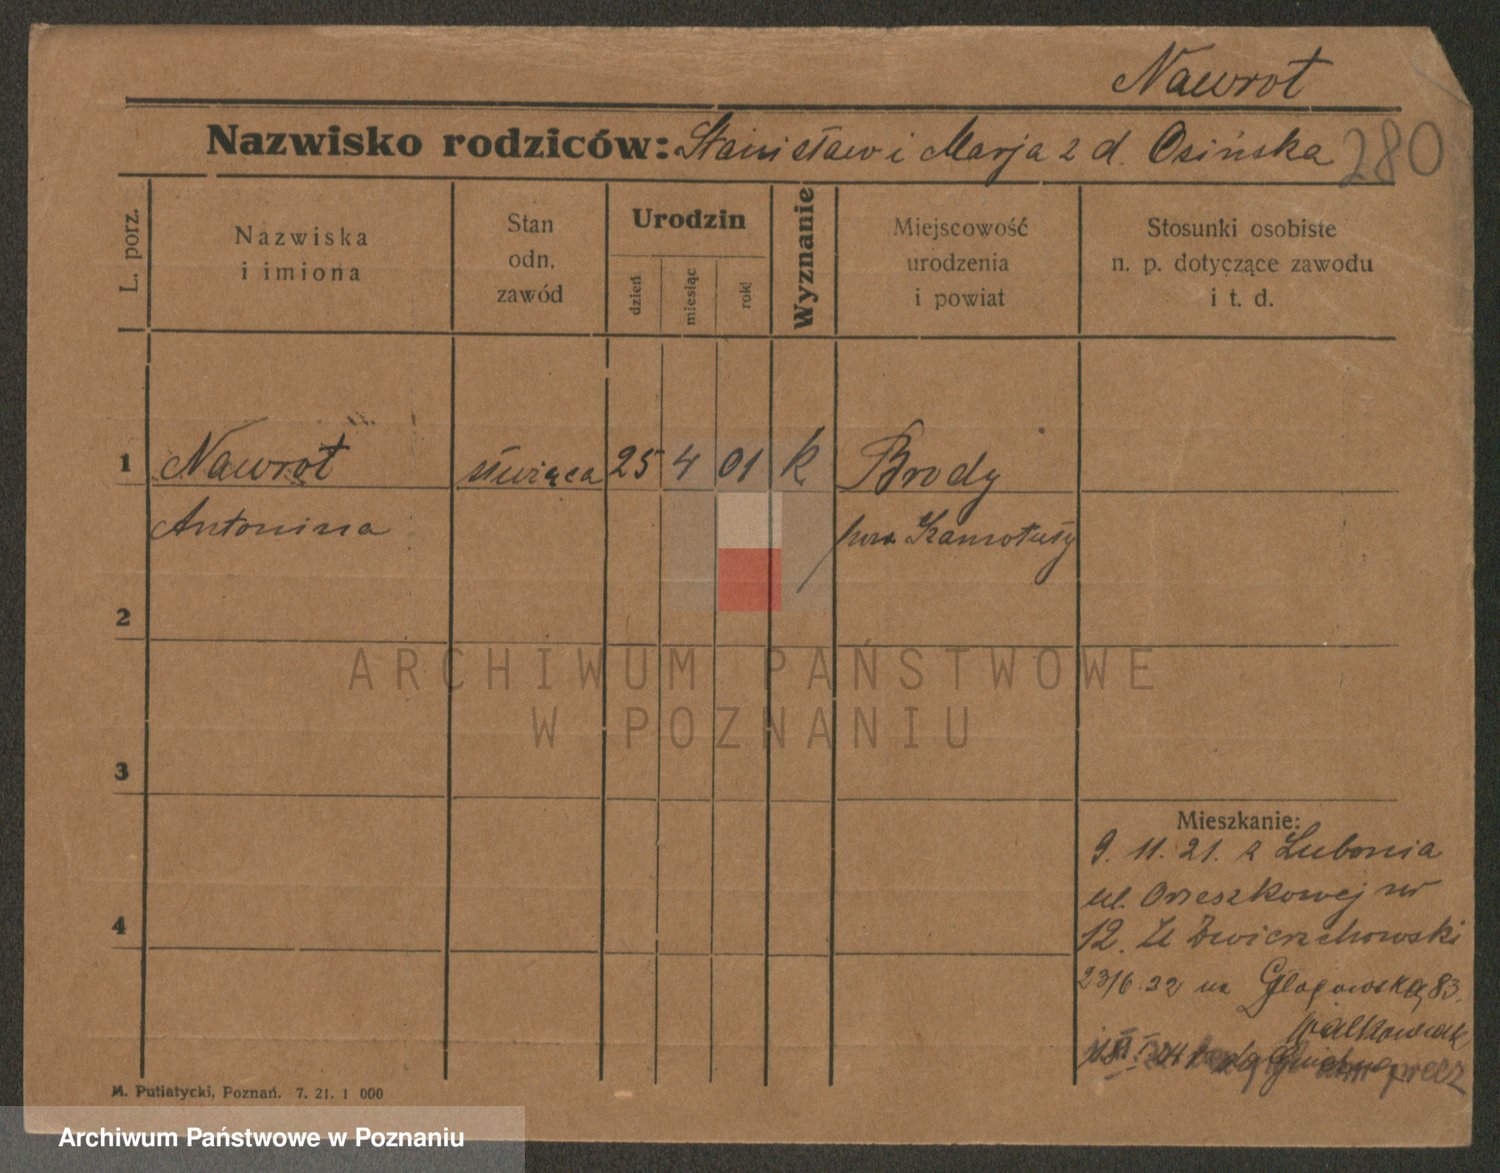 Nawrot
Nazwisko rodziców: Stanisław i Marja z d. Osińska 280
L. porz.
Nazwiska
i imiona
Stan
odn.
zawód
Urodzin
dzień
miesiąc
rok
Wyznanie
Miejscowość
urodzenia
i powiat
Stosunki osobiste
n. p. dotyczące zawodu
i t. d.
1 Nawrot służąca 25 4 01 k Brody
Antonina pow. Szamotuły
2
ARCHIWUM PAŃSTWOWE
W POZNANIU
3
Mieszkanie:
9. 11. 21. z Lubonia
ul. Orzeszkowej nr
4
12. Zwierzchowski
23/6.22 na Głogowska 83.
Walkowiak
precz
M. Putiatycki, Poznań. 7. 21. 1 000
Archiwum Państwowe w Poznaniu